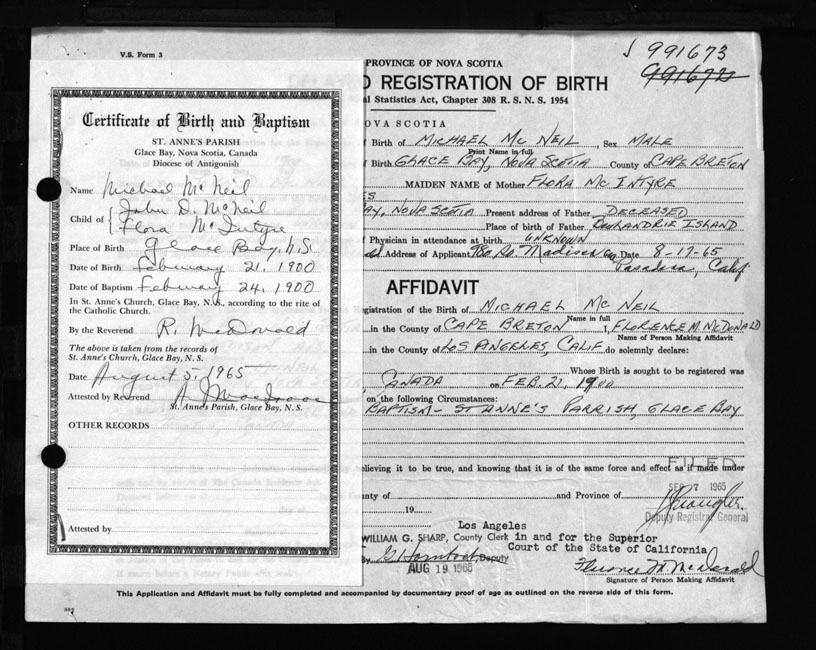 V.S. Form 3
J 991673
991672
PROVINCE OF NOVA SCOTIA
D REGISTRATION OF BIRTH
al Statistics Act, Chapter 308 R. S. N. S. 1954
OVA SCOTIA
Birth of MICHAEL MC NEIL, Sex MALE
Print Name in full
Birth GLACE BAY, NOVA SCOTIA County of CAPE BRETON
MAIDEN NAME of Mother FLORA MC INTYRE
ES
AY, NOVA SCOTIA Present address of Father DECEASED
Place of birth of Father ISLAND
Physician in attendance at birth UNKNOWN
Address of Applicant So. Madison Date 8-17-65
Pasadena, Calif
AFFIDAVIT
Registration of the Birth of MICHAEL MC NEIL
Name in full
in the County of CAPE BRETON, FLORENCE M. MCDONALD
Name of Person Making Affidavit
in the County of LOS ANGELES, CALIF. do solemnly declare:
Whose Birth is sought to be registered was
CANADA on FEB. 21, 1900
on the following Circumstances:
BAPTISM - ST ANNE'S PARRISH, GLACE BAY
elieving it to be true, and knowing that it is of the same force and effect as if made under
FILED
SEP 7 1965
nty of and Province of
19
Deputy Registrar General
Los Angeles
WILLIAM G. SHARP, County Clerk in and for the Superior
Court of the State of California
By Deputy
AUG 19 1965
Florence M McDonald
Signature of Person Making Affidavit
This Application and Affidavit must be fully completed and accompanied by documentary proof of age as outlined on the reverse side of this form.
Certificate of Birth and Baptism
ST. ANNE'S PARISH
Glace Bay, Nova Scotia, Canada
Diocese of Antigonish
Name Michael McNeil
Child of { John D. McNeil
Flora McIntyre
Place of Birth Glace Bay, N.S.
Date of Birth February 21, 1900
Date of Baptism February 24, 1900
In St. Anne's Church, Glace Bay, N.S., according to the rite of
the Catholic Church.
By the Reverend R. McDonald
The above is taken from the records of
St. Anne's Church, Glace Bay, N. S.
Date August 5, 1965
Attested by Reverend
St. Anne's Parish, Glace Bay, N. S.
OTHER RECORDS
Attested by